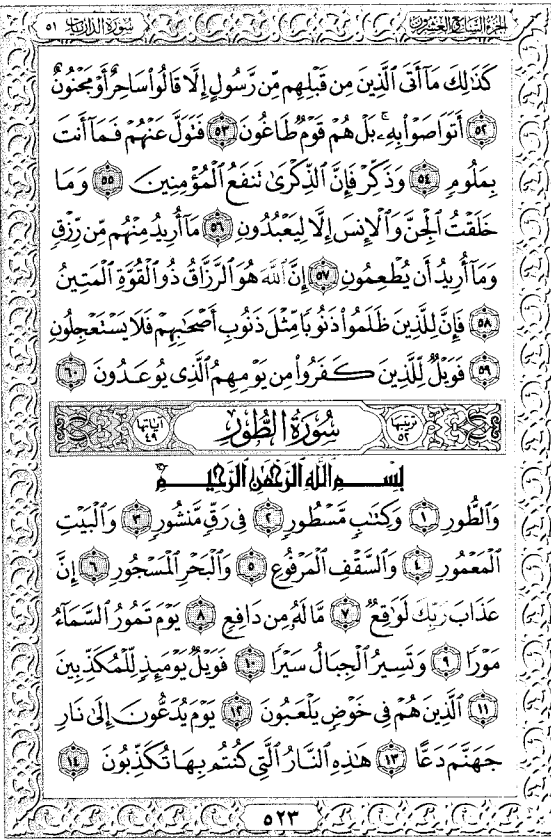 الجزء السابع والعشرون سورة الذاريات ٥١
كَذَٰلِكَ مَآ أَتَى ٱلَّذِينَ مِن قَبْلِهِم مِّن رَّسُولٍ إِلَّا قَالُوا۟ سَاحِرٌ أَوْ مَجْنُونٌ
٥٢ أَتَوَاصَوْا۟ بِهِۦ ۚ بَلْ هُمْ قَوْمٌ طَاغُونَ ٥٣ فَتَوَلَّ عَنْهُمْ فَمَآ أَنتَ
بِمَلُومٍ ٥٤ وَذَكِّرْ فَإِنَّ ٱلذِّكْرَىٰ تَنفَعُ ٱلْمُؤْمِنِينَ ٥٥ وَمَا
خَلَقْتُ ٱلْجِنَّ وَٱلْإِنسَ إِلَّا لِيَعْبُدُونِ ٥٦ مَآ أُرِيدُ مِنْهُم مِّن رِّزْقٍ
وَمَآ أُرِيدُ أَن يُطْعِمُونِ ٥٧ إِنَّ ٱللَّهَ هُوَ ٱلرَّزَّاقُ ذُو ٱلْقُوَّةِ ٱلْمَتِينُ
٥٨ فَإِنَّ لِلَّذِينَ ظَلَمُوا۟ ذَنُوبًا مِّثْلَ ذَنُوبِ أَصْحَٰبِهِمْ فَلَا يَسْتَعْجِلُونِ
٥٩ فَوَيْلٌ لِّلَّذِينَ كَفَرُوا۟ مِن يَوْمِهِمُ ٱلَّذِى يُوعَدُونَ ٦٠
ترتيبها ٥٢ سُورَةُ الطُّورِ آياتها ٤٩
بِسْمِ ٱللَّهِ ٱلرَّحْمَٰنِ ٱلرَّحِيمِ
وَٱلطُّورِ ١ وَكِتَٰبٍ مَّسْطُورٍ ٢ فِى رَقٍّ مَّنشُورٍ ٣ وَٱلْبَيْتِ
ٱلْمَعْمُورِ ٤ وَٱلسَّقْفِ ٱلْمَرْفُوعِ ٥ وَٱلْبَحْرِ ٱلْمَسْجُورِ ٦ إِنَّ
عَذَابَ رَبِّكَ لَوَٰقِعٌ ٧ مَّا لَهُۥ مِن دَافِعٍ ٨ يَوْمَ تَمُورُ ٱلسَّمَآءُ
مَوْرًا ٩ وَتَسِيرُ ٱلْجِبَالُ سَيْرًا ١٠ فَوَيْلٌ يَوْمَئِذٍ لِّلْمُكَذِّبِينَ
١١ ٱلَّذِينَ هُمْ فِى خَوْضٍ يَلْعَبُونَ ١٢ يَوْمَ يُدَعُّونَ إِلَىٰ نَارِ
جَهَنَّمَ دَعًّا ١٣ هَٰذِهِ ٱلنَّارُ ٱلَّتِى كُنتُم بِهَا تُكَذِّبُونَ ١٤
٥٢٣